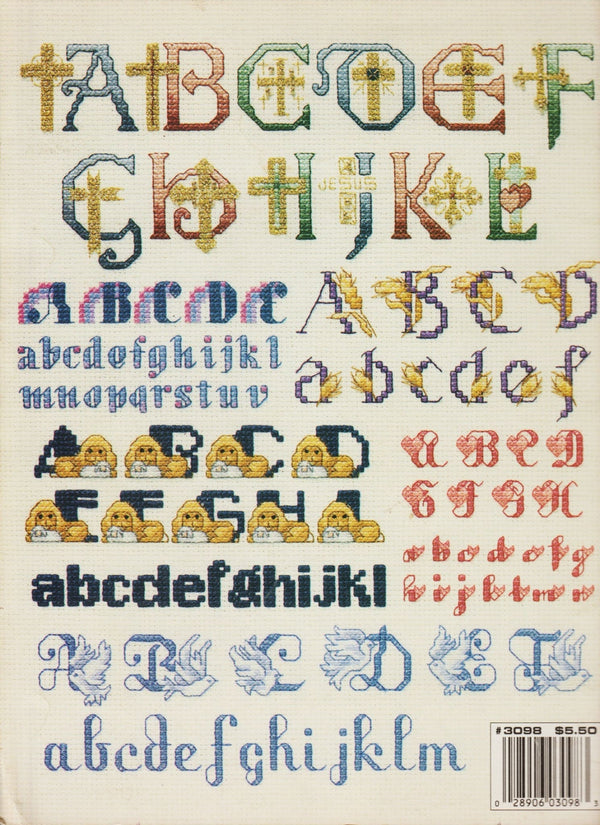 ABCDEF
GhIJKL
JESUS
ABCDE
abcdefghijkl
mnopqrstuv
ABCD
abcdef
ABCD
EFGHI
abcdefghijkl
ABCD
EFGH
abcdefg
hijklmn
ABCDEF
abcdefghijklm
#3098 $5.50
0 28906 03098 3